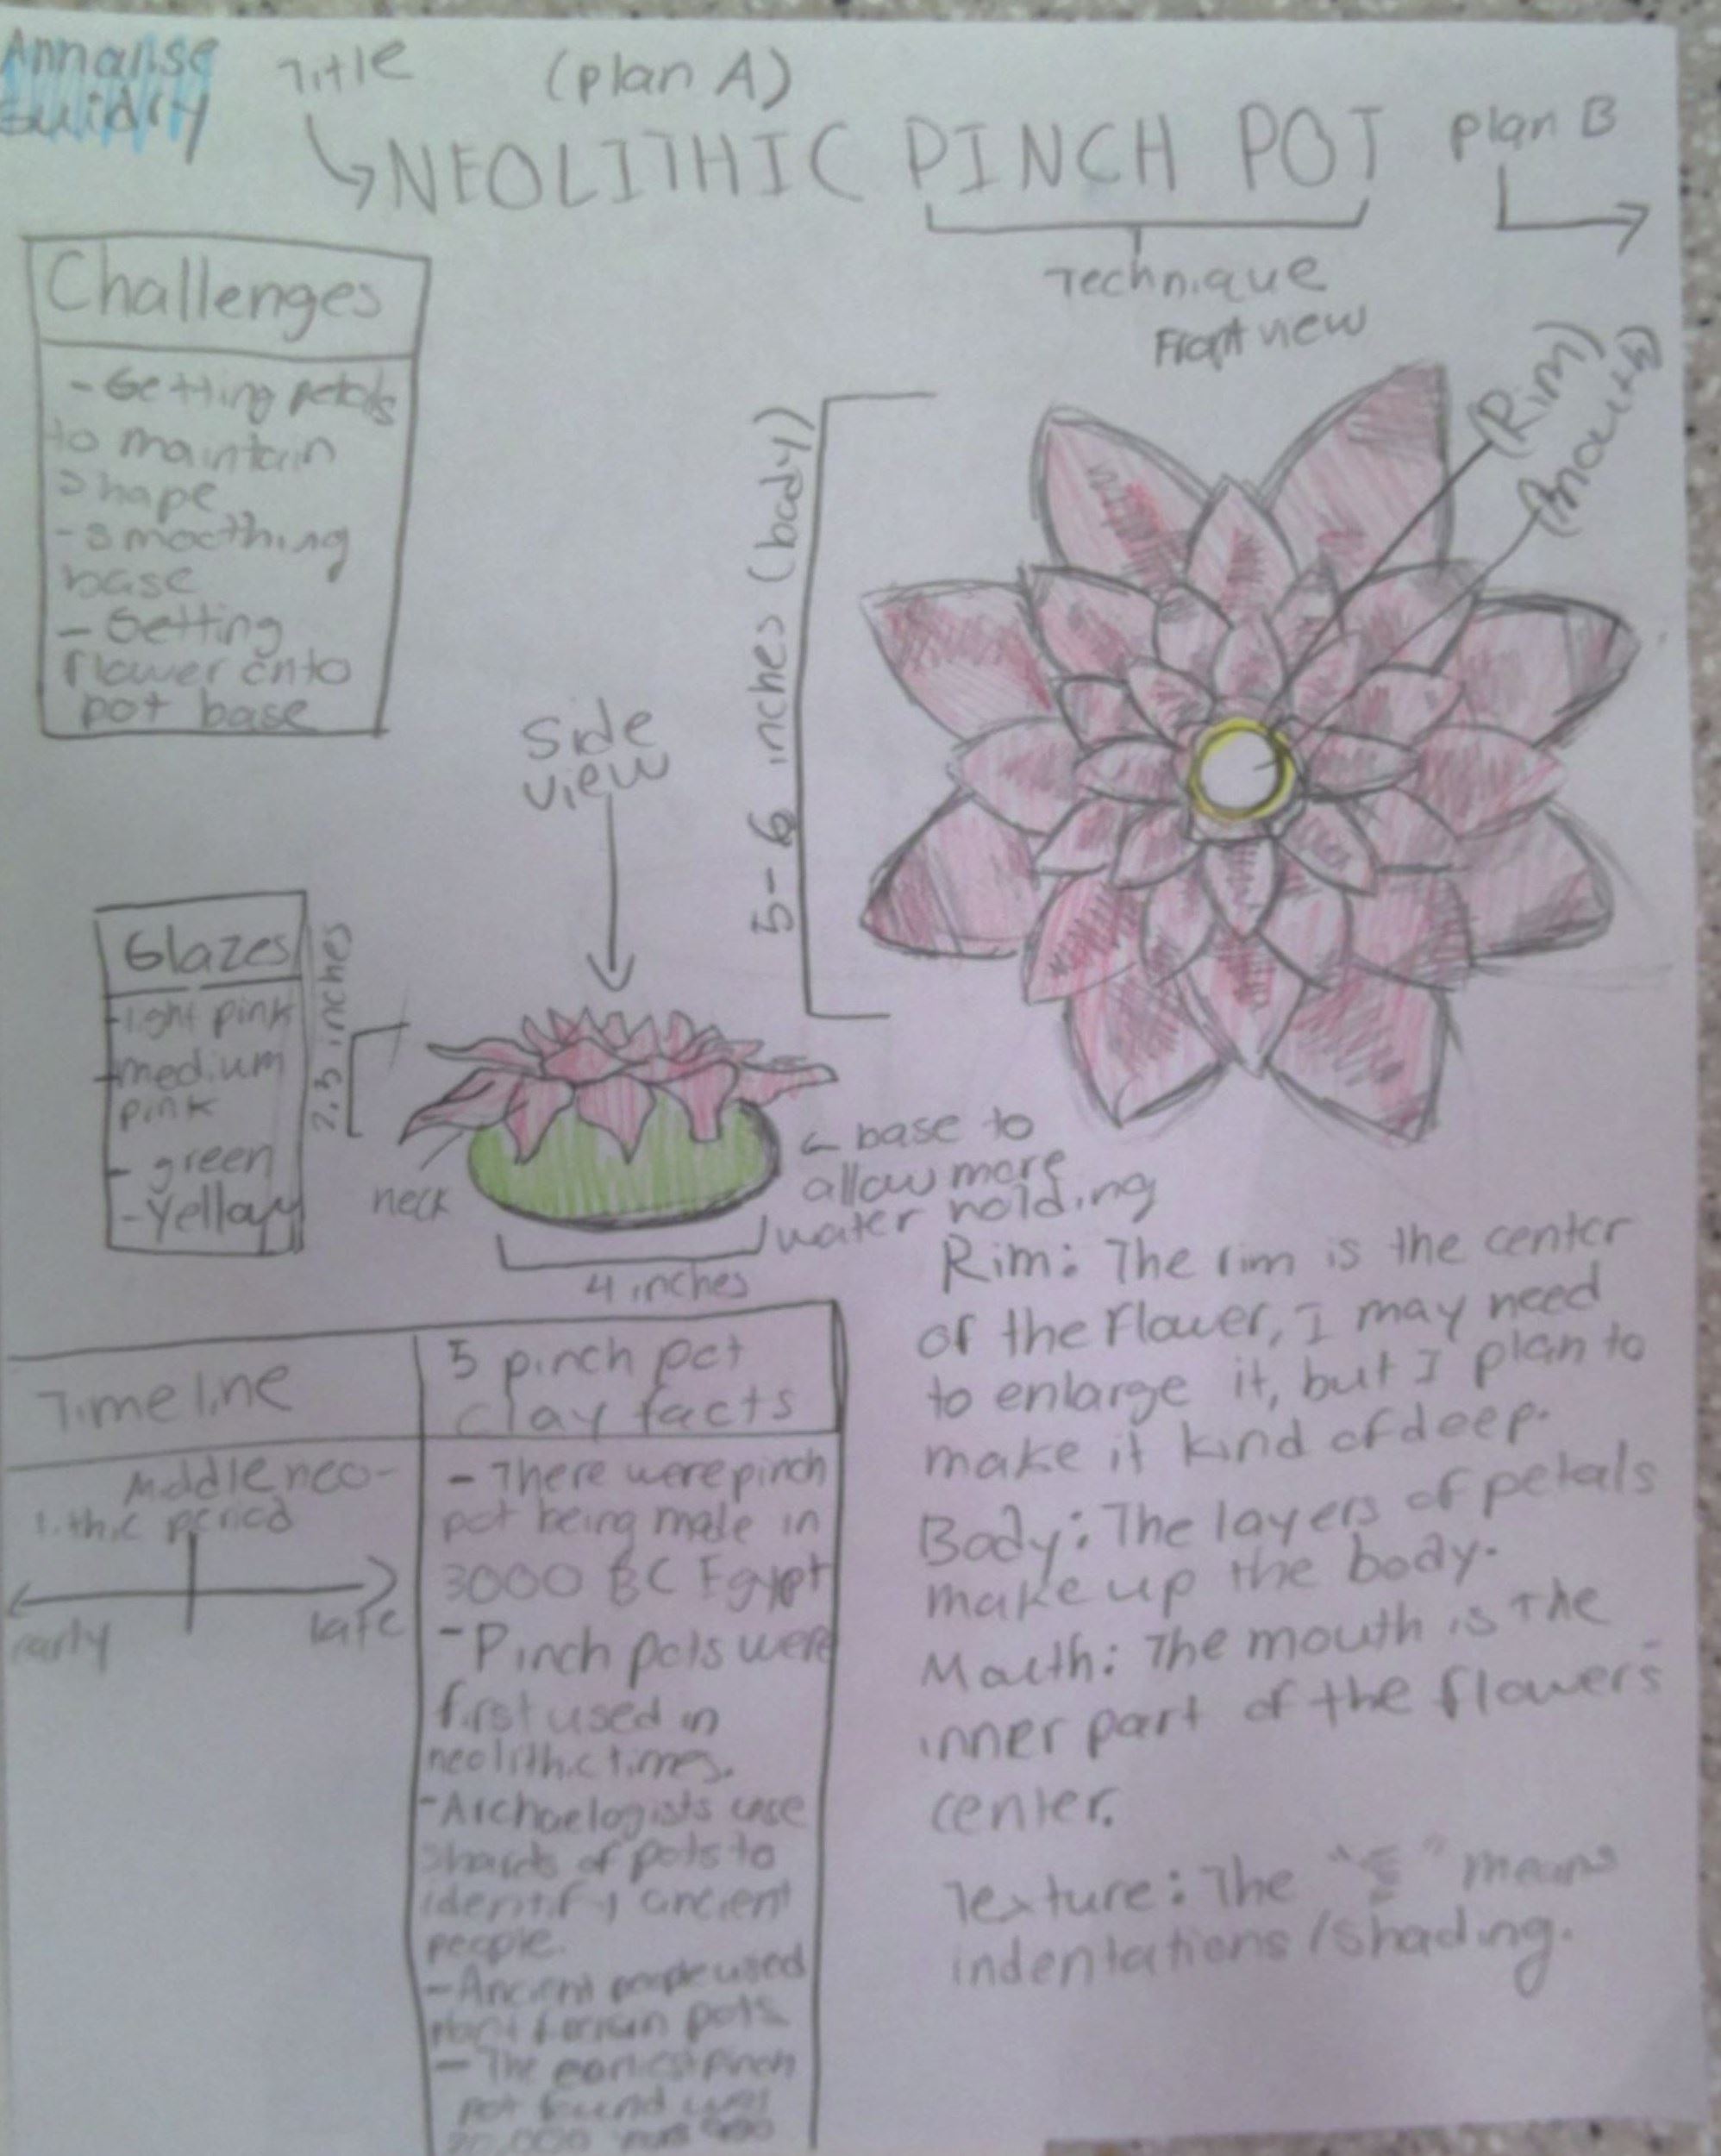 Annalise
Guidry
Title
(plan A)
NEOLITHIC PINCH POT
plan B
Technique
Front view
Challenges
- Getting petals
to maintain
shape
- smoothing
base
- Getting
flower onto
pot base
(Rim)
(mouth)
5-6 inches (body)
Side
view
Glazes
- light pink
- medium
pink
- green
- Yellow
2.5 inches
neck
base to
allow more
water holding
4 inches
Rim: The rim is the center
of the flower, I may need
to enlarge it, but I plan to
make it kind of deep.
Body: The layers of petals
make up the body.
Mouth: The mouth is the
inner part of the flowers
center.
Texture: The " " means
indentations/shading.
Timeline
Middle neo-
lithic period
early
late
5 pinch pot
clay facts
- There were pinch
pot being made in
3000 BC Egypt
- Pinch pots were
first used in
neolithic times.
- Archaelogists use
shards of pots to
identify ancient
people.
- Ancient people used
plant pots
- The earliest pinch
pot found was
20,000